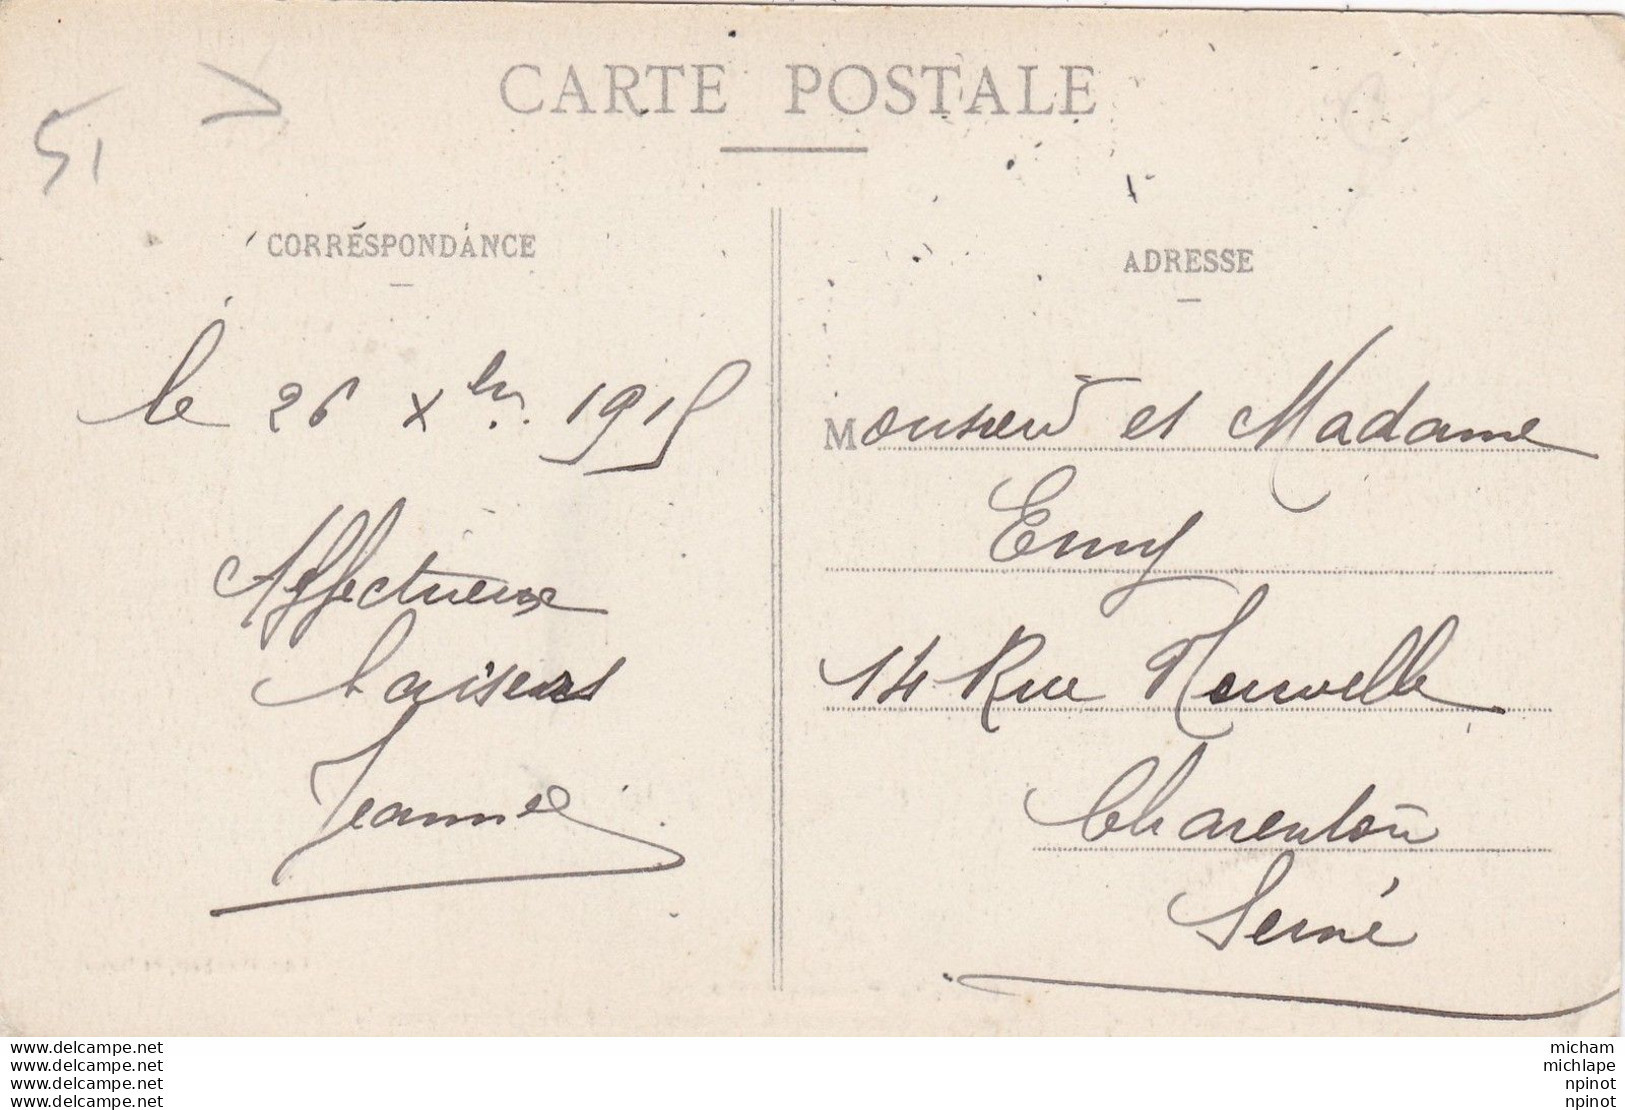 51
CARTE POSTALE
CORRESPONDANCE
ADRESSE
le 26 Xbre. 1915
Affectueux
baisers
Jeanne
Monsieur et Madame
Emy
14 Rue Nouvelle
Charenton
Seine
www.delcampe.net
www.delcampe.net
www.delcampe.net
www.delcampe.net
micham
michlape
npinot
npinot